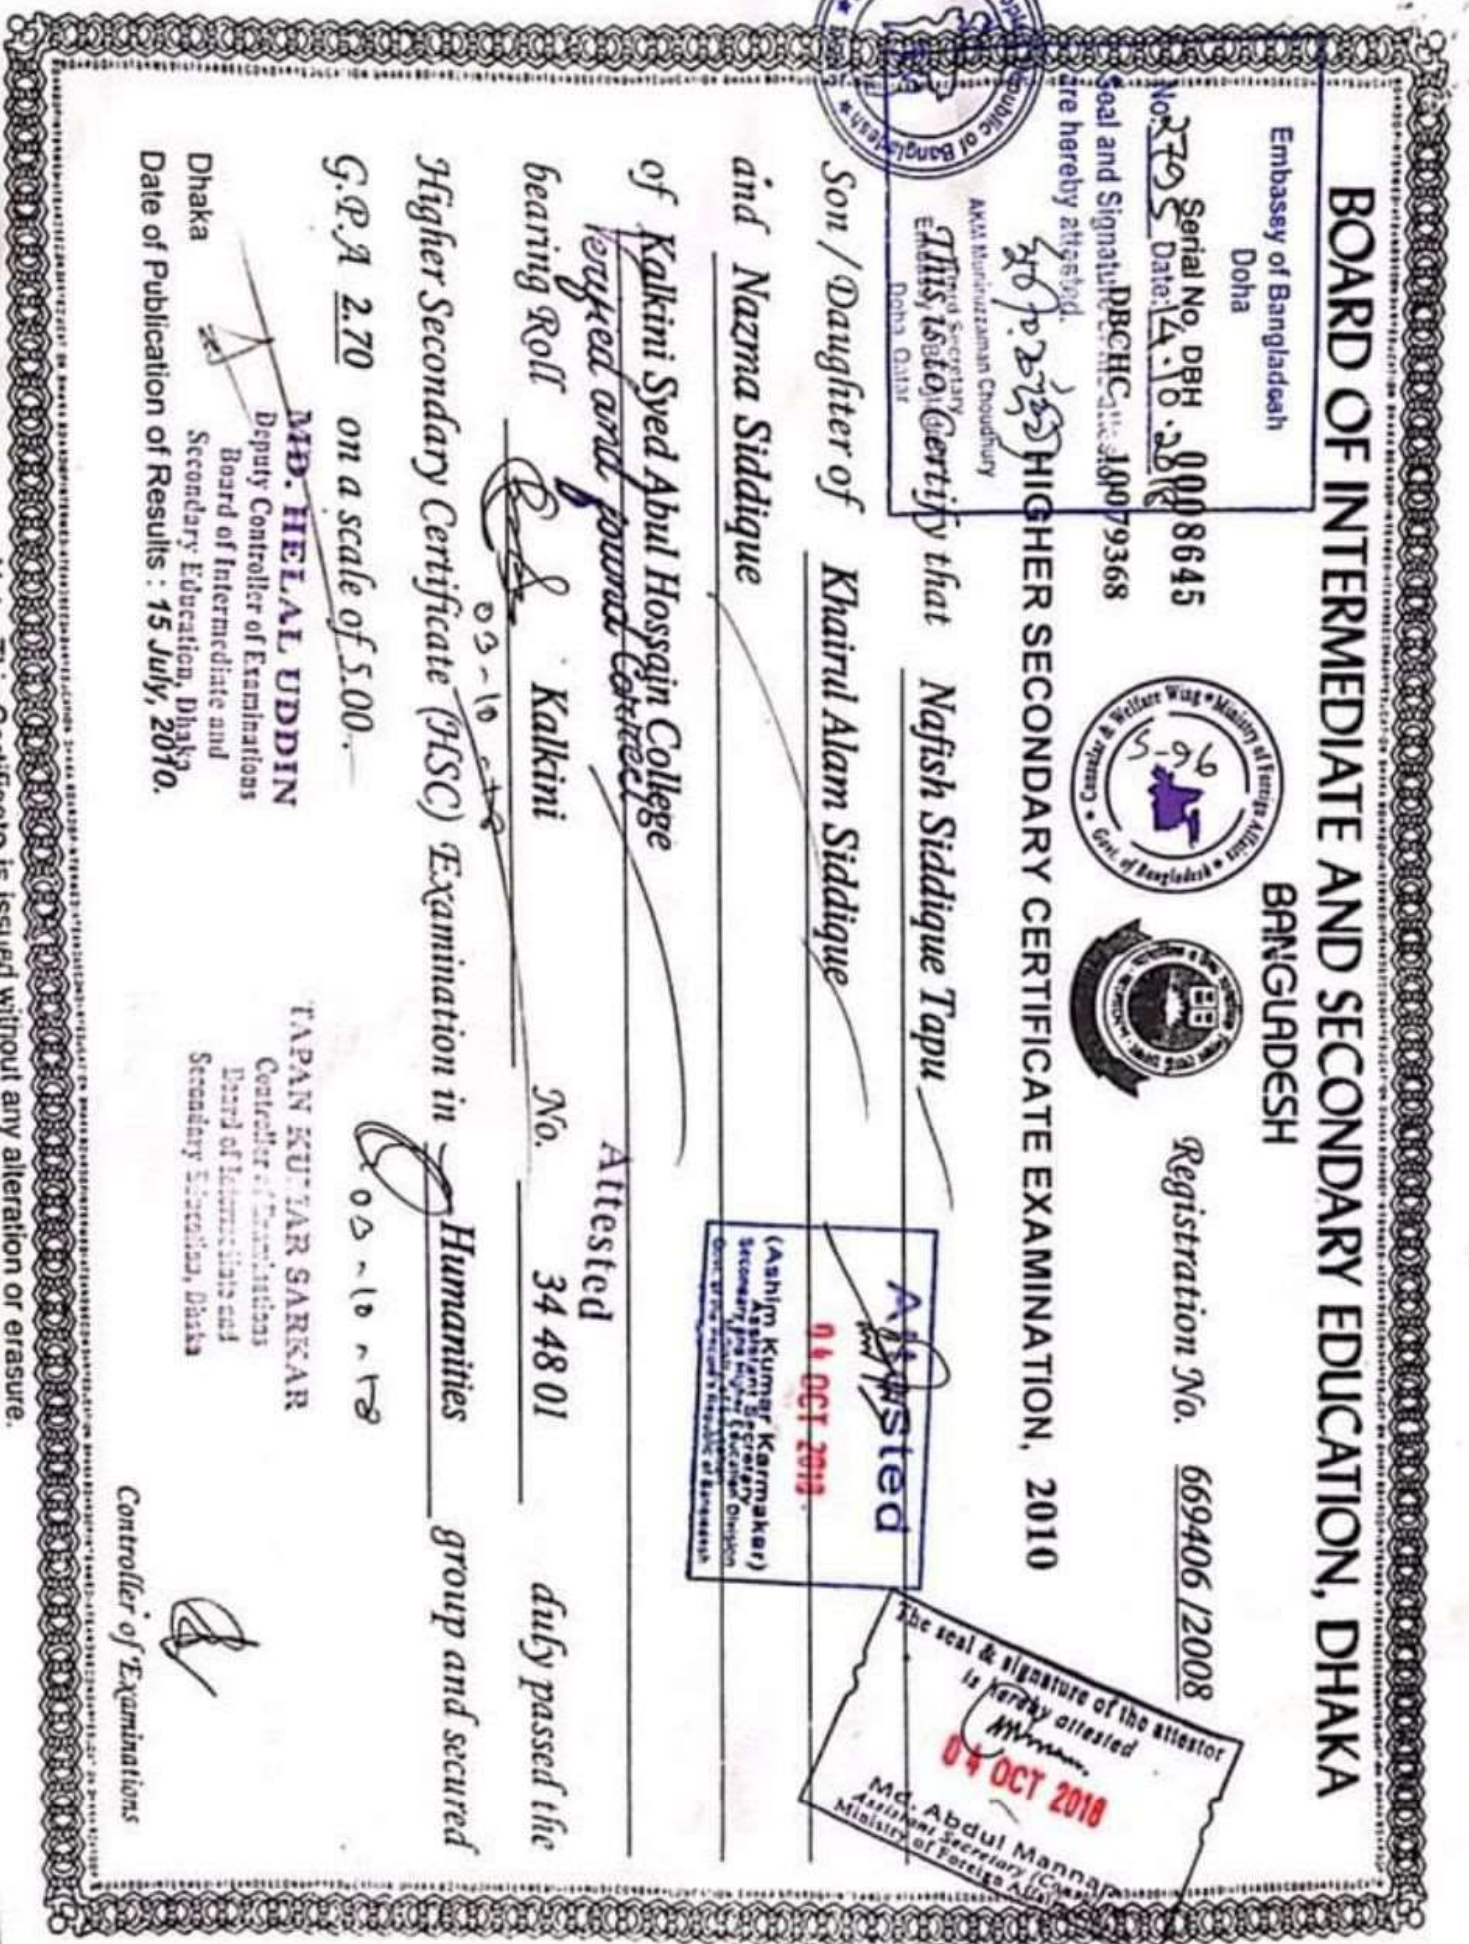 BOARD OF INTERMEDIATE AND SECONDARY EDUCATION, DHAKA
BANGLADESH
Embassy of Bangladesh
Doha
No. 2795 Date: 14.10.2018
Seal and Signature
are hereby attested.
AKM Moniruzzaman Choudhury
Third Secretary
Embassy of
Doha Qatar
Republic of Bangladesh
Serial No. DBH 0008645
DBCHC 10079368
Consular & Welfare Wing * Ministry of Foreign Affairs
Govt. of Bangladesh
5-96
Registration No. 669406 /2008
HIGHER SECONDARY CERTIFICATE EXAMINATION, 2010
This is to Certify that Nafish Siddique Tapu
Son / Daughter of Khairul Alam Siddique
and Nazma Siddique
of Kalkini Syed Abul Hossain College
Verified and found Correct
bearing Roll Kalkini No. 34 48 01 duly passed the
Higher Secondary Certificate (HSC) Examination in Humanities group and secured
G.P.A 2.70 on a scale of 5.00.
03-10-18
Attested
03-10-18
Attested
04 OCT 2018
(Ashim Kumar Karmakar)
Assistant Secretary
Secondary and Higher Education Division
Govt. of the People's Republic of Bangladesh
The seal & signature of the attestor
is hereby attested
04 OCT 2018
Md. Abdul Mannan
Assistant Secretary
Ministry of Foreign Affairs
MD. HELAL UDDIN
Deputy Controller of Examinations
Board of Intermediate and
Secondary Education, Dhaka.
TAPAN KUMAR SARKAR
Controller of Examinations
Board of Intermediate and
Secondary Education, Dhaka
Dhaka
Date of Publication of Results : 15 July, 2010.
Controller of Examinations
This Certificate is issued without any alteration or erasure.